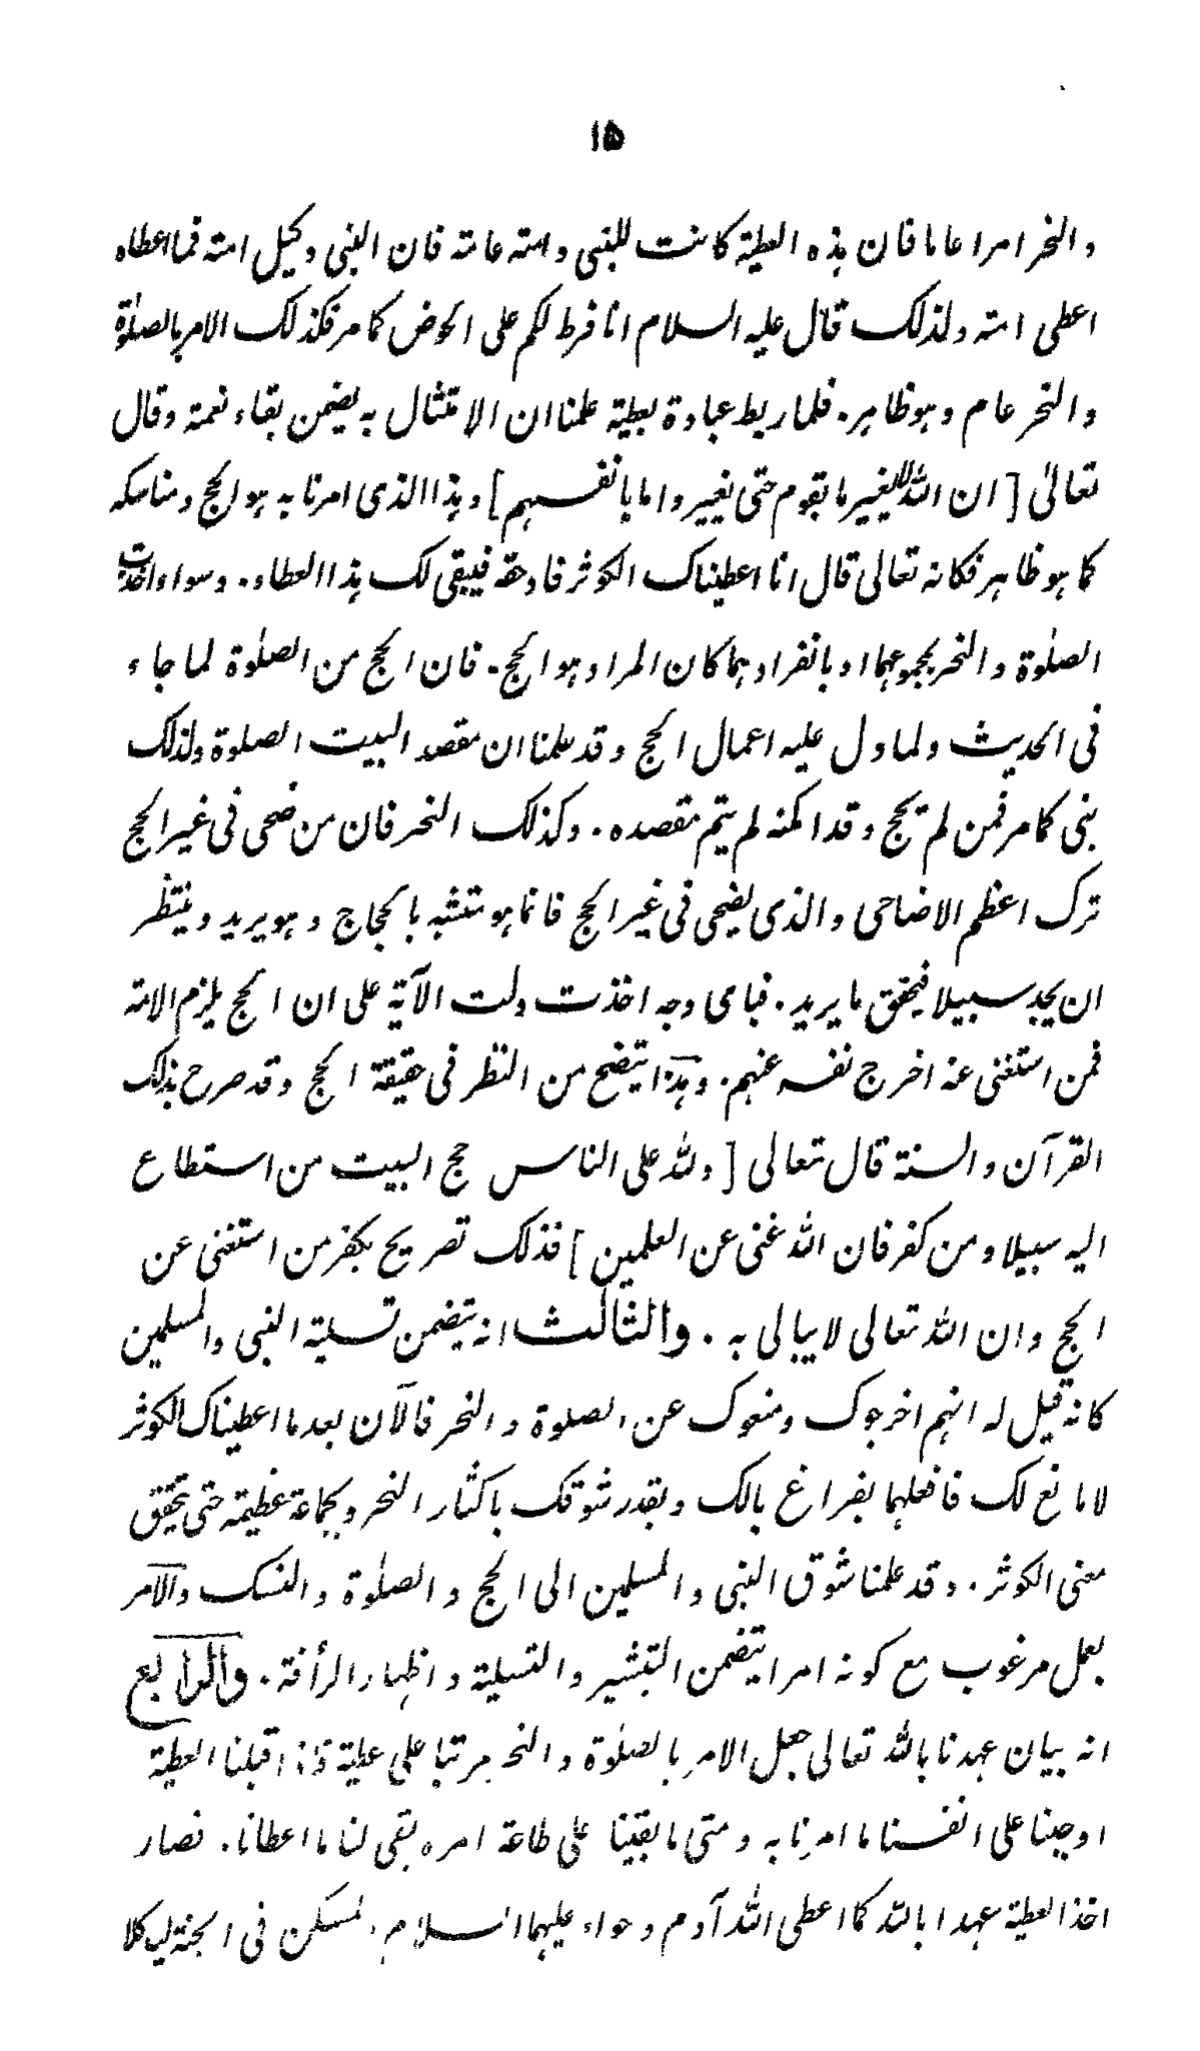 ۱۵
والنحر امرا عاما فان ہذہ العطیۃ کانت للنبی وامتہ عامۃ فان النبی وکیل امتہ فما اعطاہ
اعطی امتہ ولذلک قال علیہ السلام انا فرط لکم علی الحوض کما مر فکذلک الامر بالصلوٰۃ
والنحر عام وہو ظاہر۔ فلما ربط عبادۃ بعطیۃ علمنا ان الامتثال بہ یضمن بقاء نعمۃ وقال
تعالیٰ [ان اللہ لایغیر ما بقوم حتی یغیروا ما بانفسہم] وہذا الذی امرنا بہ ہو الحج ومناسکہ
کما ہو ظاہر فکانہ تعالی قال انا اعطیناک الکوثر فاد حقہ فیبقی لک ہذا العطاء۔ وسواء اخذت
الصلوٰۃ والنحر بمجموعہما او بانفرادہما کان المراد ہو الحج۔ فان الحج من الصلوٰۃ لما جاء
فی الحدیث ولما دل علیہ اعمال الحج وقد علمنا ان مقصد البیت الصلوۃ ولذلک
بنی کما مر فمن لم یحج وقد امکنہ لم یتم مقصدہ۔ وکذلک النحر فان من ضحی فی غیر الحج
ترک اعظم الاضاحی والذی یضحی فی غیر الحج فانما ہو متشبہ بالحجاج وہو یرید وینتظر
ان یجد سبیلا فیحقق ما یرید۔ فبای وجہ اخذت دلت الآیۃ علی ان الحج یلزم الامۃ
فمن استغنی عنہ اخرج نفسہ عنہم۔ وہذا یتضح من النظر فی حقیقۃ الحج وقد صرح بذلک
القرآن والسنۃ قال تعالی [وللہ علی الناس حج البیت من استطاع
الیہ سبیلا ومن کفر فان اللہ غنی عن العلمین] فذلک تصریح بکفر من استغنی عن
الحج وان اللہ تعالی لا یبالی بہ۔ والثالث انہ یتضمن تسلیۃ النبی والمسلمین
کانہ قیل لہ انہم اخرجوک ومنعوک عن الصلوۃ والنحر فالآن بعد ما اعطیناک الکوثر
لا مانع لک فافعلہما بفراغ بالک وبقدر شوقک باکثار النحر وبجماعۃ عظیمۃ حتی یتحقق
معنی الکوثر۔ وقد علمنا شوق النبی والمسلمین الی الحج والصلوٰۃ والنسک والامر
بعمل مرغوب مع کونہ امرا یتضمن التبشیر والتسلیۃ واظہار الرأفۃ۔ والرابع
انہ بیان عہدنا باللہ تعالی جعل الامر بالصلوٰۃ والنحر مرتبا علی عطیۃ فاذا قبلنا العطیۃ
اوجبنا علی انفسنا ما امرنا بہ ومتی ما بقینا علی طاعۃ امرہ بقی لنا ما اعطانا۔ فصار
اخذ العطیۃ عہدا باللہ کما اعطی اللہ آدم وحواء علیہما السلام لمسکن فی الجنۃ لیاکلا